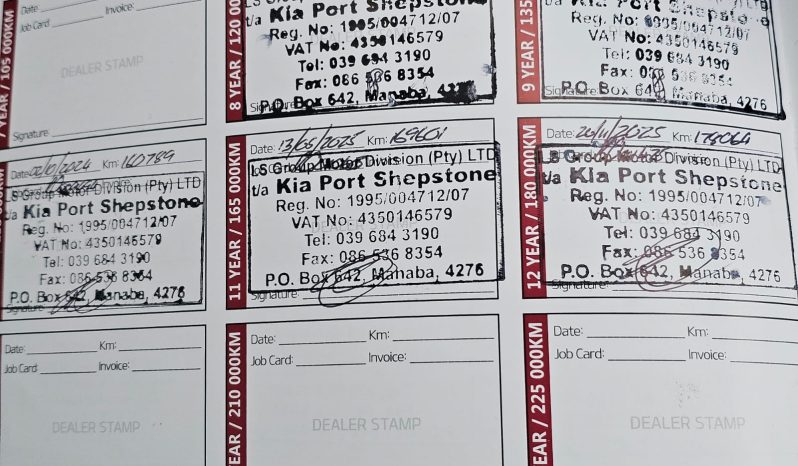 7 YEAR / 105 000KM
Date: Invoice:
Job Card:
DEALER STAMP
Signature:
8 YEAR / 120 00
LS Group
t/a Kia Port Shepstone
Reg. No: 1995/004712/07
VAT No: 4350146579
Tel: 039 684 3190
Fax: 086 536 8354
P.O. Box 642, Manaba, 4276
Signature:
9 YEAR / 135
t/a Kia Port Shepstone
Reg. No: 1995/004712/07
VAT No: 4350146579
Tel: 039 684 3190
Fax: 086 536 8354
P.O. Box 642, Manaba, 4276
Signature:
000KM
Date: 2024 Km: 160789
LS Group Motor Division (Pty) LTD
t/a Kia Port Shepstone
Reg. No: 1995/004712/07
VAT No: 4350146579
Tel: 039 684 3190
Fax: 086 536 8354
P.O. Box 642, Manaba, 4276
Signature:
11 YEAR / 165 000KM
Date: 13/05/2025 Km:
LS Group Motor Division (Pty) LTD
t/a Kia Port Shepstone
Reg. No: 1995/004712/07
VAT No: 4350146579
Tel: 039 684 3190
Fax: 086 536 8354
P.O. Box 642, Manaba, 4276
Signature:
12 YEAR / 180 000KM
Date: 2025 Km: 178064
LS Group Motor Division (Pty) LTD
t/a Kia Port Shepstone
Reg. No: 1995/004712/07
VAT No: 4350146579
Tel: 039 684 3190
Fax: 086 536 8354
P.O. Box 642, Manaba, 4276
Signature:
Date: Km:
Job Card: Invoice:
DEALER STAMP
EAR / 210 000KM
Date: Km:
Job Card: Invoice:
DEALER STAMP
EAR / 225 000KM
Date: Km:
Job Card: Invoice:
DEALER STAMP